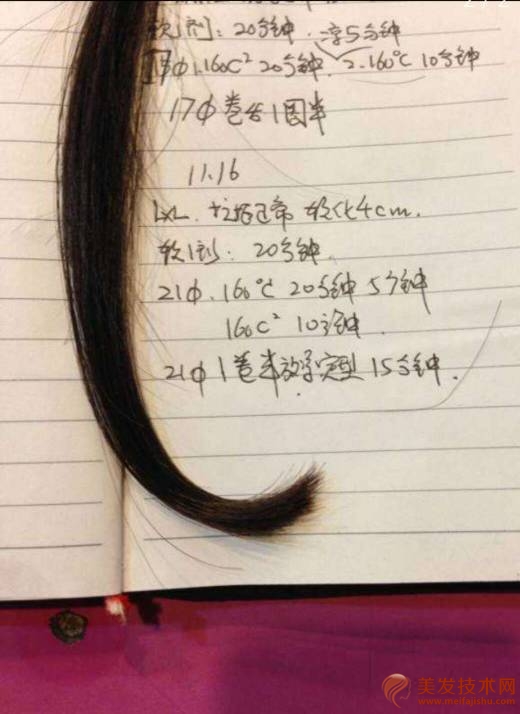 软1剂：20分钟．淳5分钟
17φ1.160C² 20分钟．2.160℃ 10分钟
17φ 卷合1圈半
11.16
软化4cm．
软1剂：20分钟．
21φ．160℃ 20分钟 5分钟
160C² 10分钟．
21φ 1卷半 定型 15分钟．
美发技术网
www.meifajishu.com